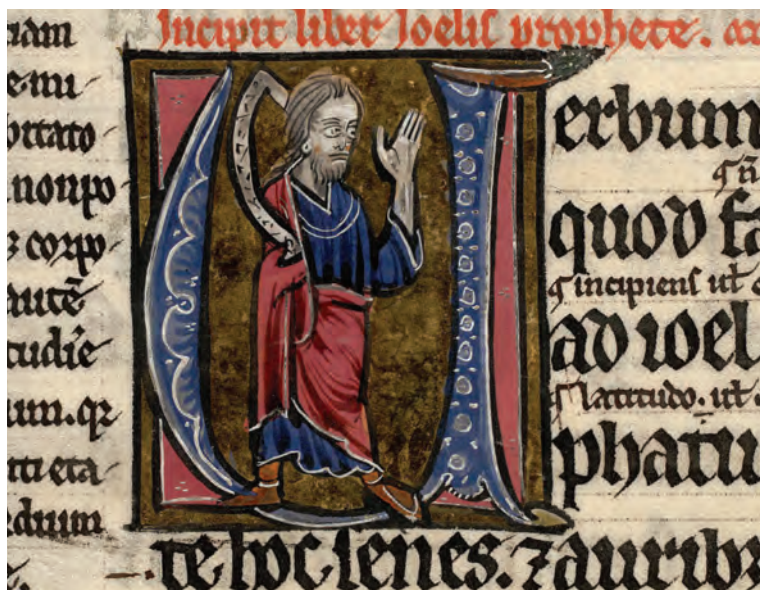 Incipit liber Joelis prophete.
e mi
ortato
non po
corpo
autē
um. qz
ti eta
dium
erbum
quod fa
incipiens ut
ad ioel
latitudo. ut
phatu
te hoc senes. ⁊ auribz